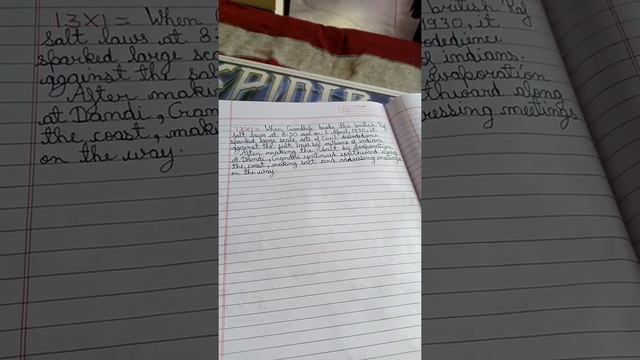 SPIDER
13×1 = When Gandhiji broke the british Raj
salt laws at 8:30 am on 6 April 1930, it
sparked large scale acts of Civil disobedience
against the salt laws by millions of Indians.
After making the salt by evaporation
at Dandi, Gandhi continued southward along
the coast, making salt and addressing meetings
on the way.